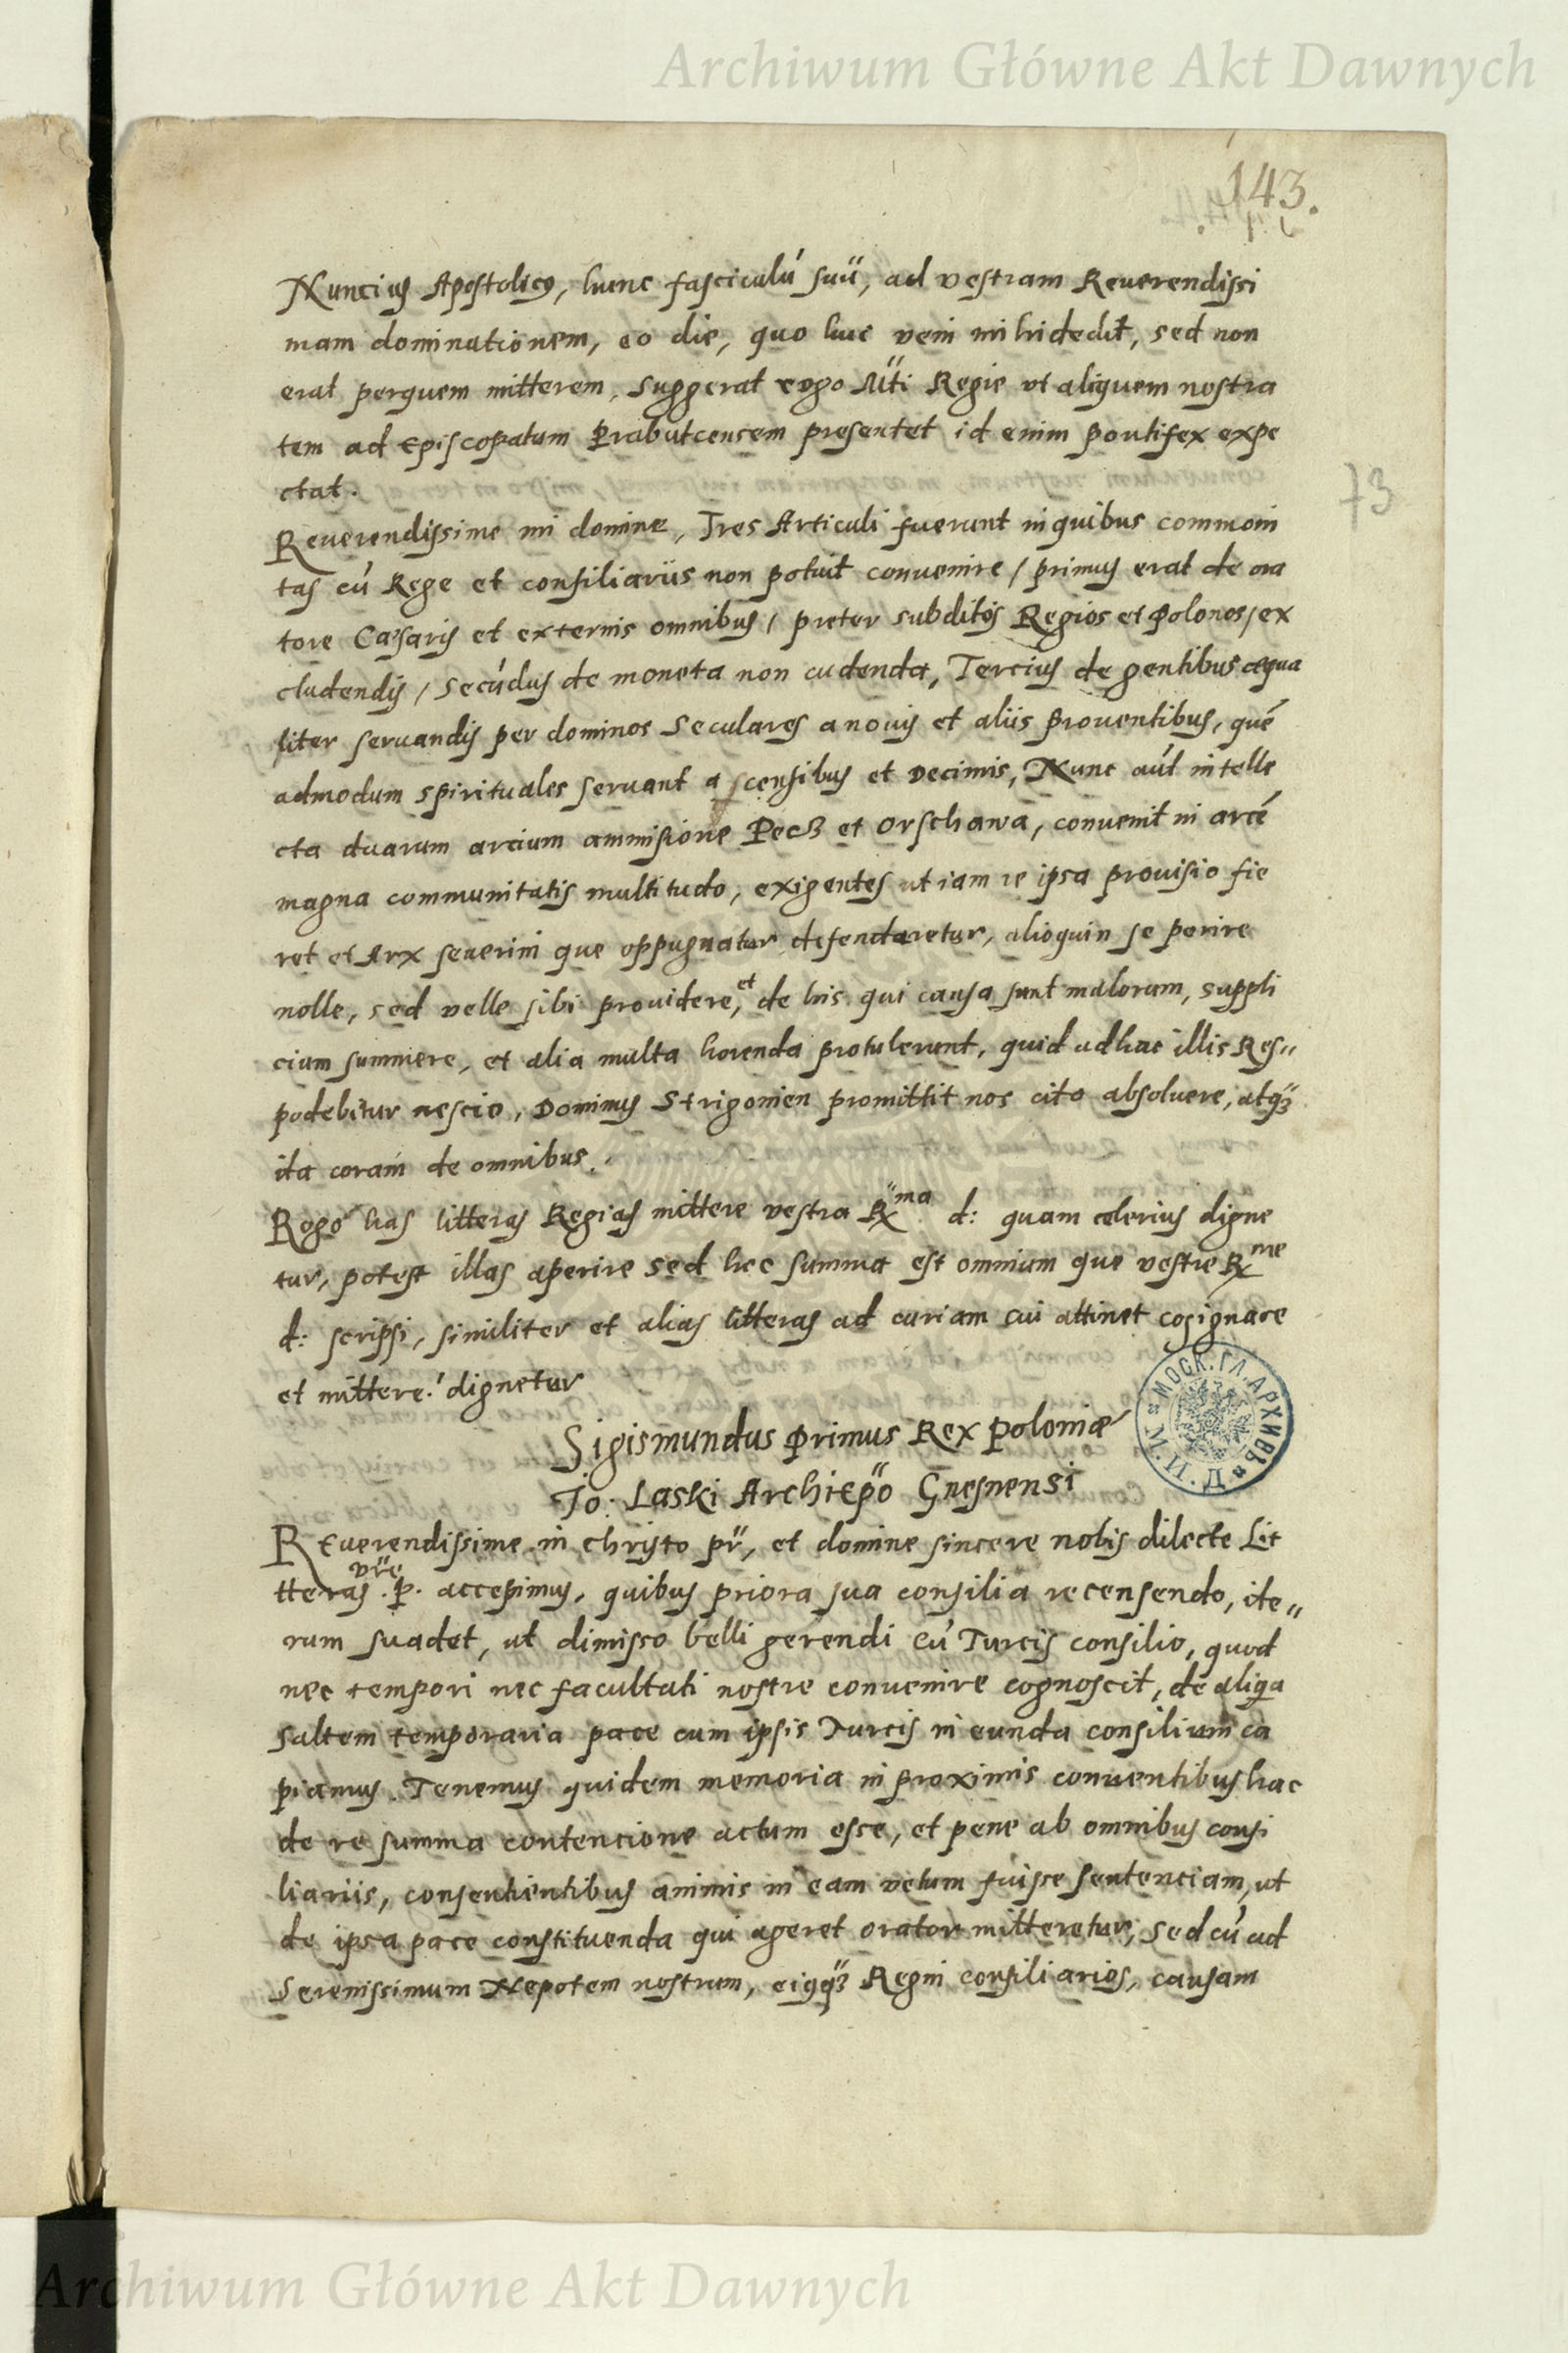 Archiwum Główne Akt Dawnych
143.
Nuncius Apostolicus, hunc fasciculũ suũ, ad vestram Reverendissi
mam dominationem, eo die, quo huc veni mihi dedit, sed non
erat per quem mitterem, suggerat ergo Mti Regie ut aliquem nostra
tem ad Episcopatum Prabutcensem presentet id enim pontifex expe
ctat.
73
Reuerendissime mi domine, Tres Articuli fuerunt in quibus commoni
tas cũ Rege et consiliariis non potuit conuenire / primus erat de ora
tore Cæsaris et externis omnibus / preter subditos Regios et Polonos / ex
cludendis / secũdus de moneta non cudenda, Tercius de gentibus æqua
liter seruandis per dominos Seculares a nouis et aliis prouentibus, quẽ
admodum spirituales seruant a censibus et Decimis, Nunc aũt intelle
cta duarum arcium ammisione Pecz et Orschawa, convenit in arcẽ
magna communitatis multitudo, exigentes ut iam re ipsa prouisio fie
ret et Arx seuerini que oppugnatur defendaretur, alioquin se perire
nolle, sed velle sibi prouidere, et de his qui causa sunt malorum, suppli
cium summere, et alia multa horenda protulerunt, quid ad hac illis Res„
podebitur nescio, Dominus Strigonien promittit nos cito absoluere, atq3
ita coram de omnibus.
Rogo has litteras Regias mittere vestra Rma d: quam celerius digne
tur, potest illas aperire sed hec summa est omnium que vestre Rme
d: scripsi, similiter et alias litteras ad curiam cui attinet cosignare
et mittere dignetur
МОСК. ГЛ. АРХИВЪ М. И. Д.
Sigismundus Primus Rex Poloniæ
Jo: Laski Archiepo Gnesnensi
REuerendissime in christo pr, et domine sincere nobis dilecte Lit
tteras vre .p. accepimus, quibus priora sua consilia recensendo, ite„
rum suadet, ut dimisso belli gerendi cũ Turcis consilio, quod
nec tempori nec facultati nostre conuenire cognoscit, de aliqa
saltem temporaria pace cum ipsis Turcis in eunda consilium ca
piamus. Tenemus quidem memoria in proximis conuentibus hac
de re summa contencione actum esse, et pene ab omnibus consi
liariis, consentientibus animis in eam vetum fuisse sentenciam, ut
de ipsa pace constituenda qui ageret orator mitteretur, sed cũ ad
Serenissimum Nepotem nostrum, eiqq3 Regni consiliarios, causam
Archiwum Główne Akt Dawnych